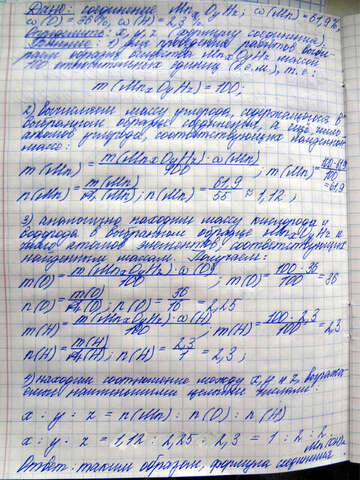 Дано: соединение MnxOyHz; ω(Mn) = 61,9%
ω(O) = 36%, ω(H) = 2,3%
Определить: x, y, z (формулу соединения)
Решение: 1) для проведения расчётов
образец вещества MnxOyHz массой
100 относительных единиц (а.е.м.), т.е.:
m(MnxOyHz) = 100;
2) Вычисляем массу углерода, содержащегося в
образце, а ещё число
атомов углерода, соответствующих найденной
массе:
m(Mn) = m(MnxOyHz)·ω(Mn) / 100 ; m(Mn) = / 100 = 61,9
n(Mn) = m(Mn) / Ar(Mn) ; n(Mn) = 61,9 / 55 ≈ 1,12 ;
3) Аналогично находим массу кислорода и
водорода в выбранном образце MnxOyHz и
число атомов элементов, соответствующих
найденным массам. Получаем:
m(O) = m(MnxOyHz)·ω(O) / 100 ; m(O) = 100·36 / 100 = 36
n(O) = m(O) / Ar(O) ; n(O) = 36 / 16 = 2,25
m(H) = m(MnxOyHz)·ω(H) / 100 ; m(H) = 100·2,3 / 100 = 2,3
n(H) = m(H) / Ar(H) ; n(H) = 2,3 / 1 = 2,3 ;
4) находим соотношение между x, y и z,
наименьшими целыми числами:
x : y : z = n(Mn) : n(O) : n(H)
x : y : z = 1,12 : 2,25 : 2,3 = 1 : 2 : 2
Ответ: таким образом, формула соединения Mn(OH)2